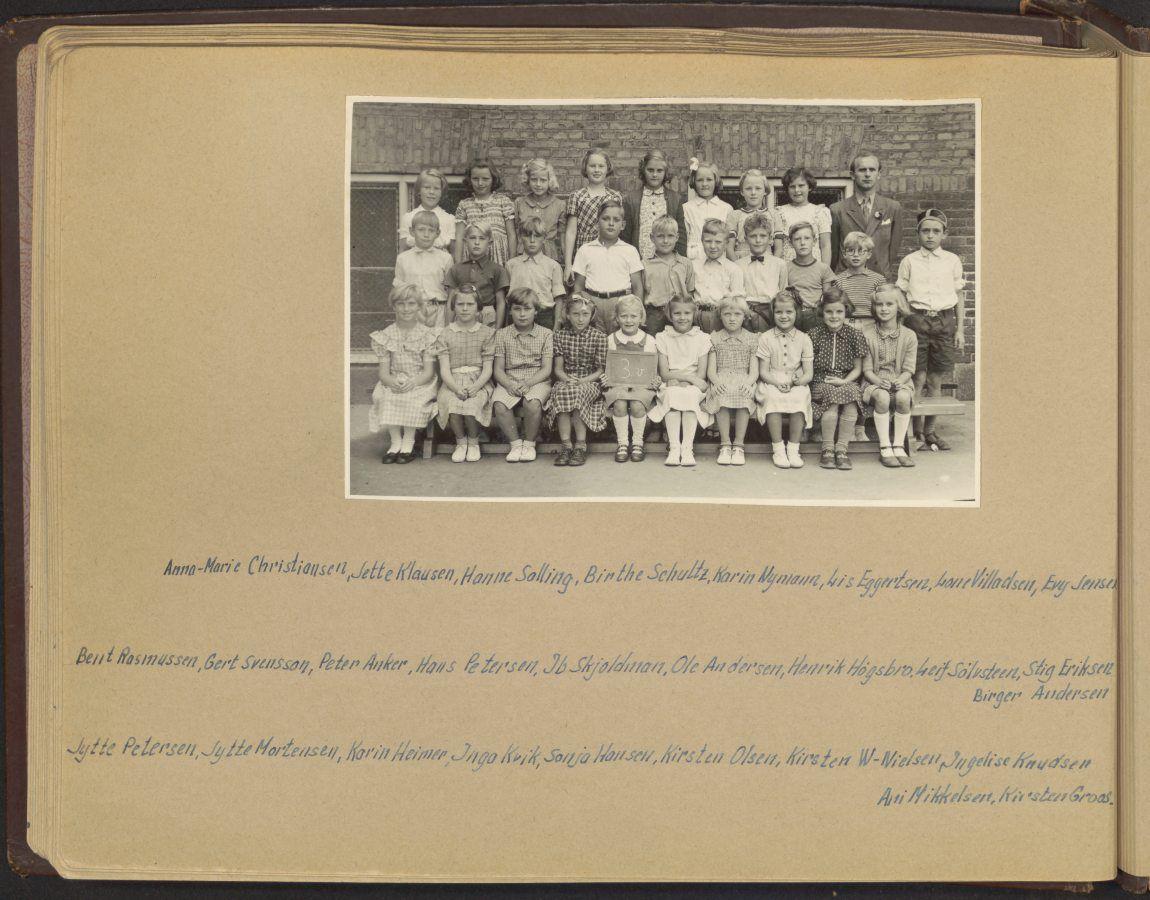 3.v
Anna-Marie Christiansen, Jette Klausen, Hanne Solling, Birthe Schultz, Karin Nymann, Lis Eggertsen, Lone Villadsen, Evy Jensen
Bent Rasmussen, Gert Svensson, Peter Anker, Hans Petersen, Ib Skjoldman, Ole Andersen, Henrik Högsbro, Leif Sölvsteen, Stig Eriksen
Birger Andersen
Jytte Petersen, Jytte Mortensen, Karin Heimer, Inga Kvik, Sonja Hansen, Kirsten Olsen, Kirsten W-Nielsen, Ingelise Knudsen
Ani Mikkelsen, Kirsten Groos.